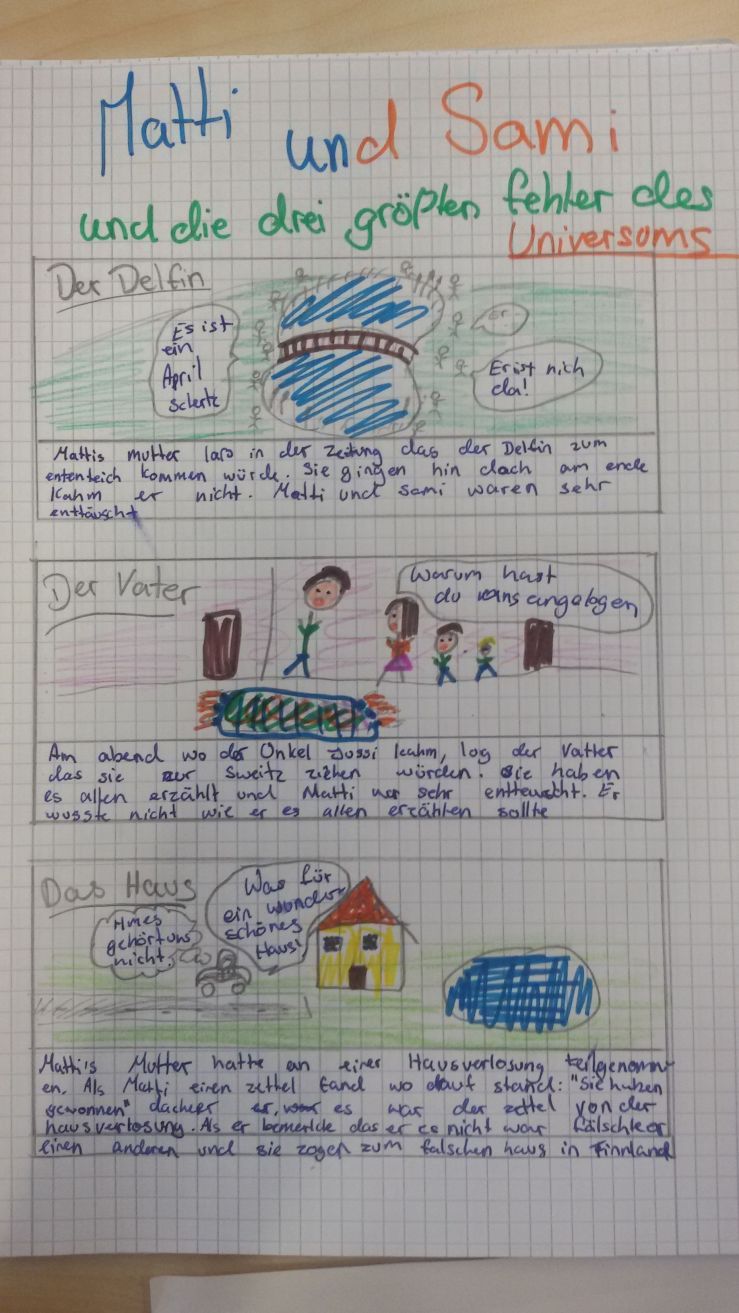 Matti und Sami
und die drei größten fehler des
Universoms
Der Delfin
Es ist
ein
April
Schertz
Er
Er ist nich
da!
Mattis mutter lars in der Zeitung das der Delfin zum
ententeich kommen würde. Sie gingen hin doch am ende
kahm er nicht. Matti und sami waren sehr
enttäuscht
Der Vater
Warum hast
du uns angelogen
Am abend wo der Onkel Jussi kahm, log der Vatter
das sie zur Sweitz ziehen würden. Sie haben
es allen erzählt und Matti war sehr entteuscht. Er
wusste nicht wie er es allen erzählen sollte
Das Haus
Hmes
gehört uns
nicht.
Was für
ein wunder
schönes
Haus!
Matti's Mutter hatte an einer Hausverlosung teilgenomm
en. Als Matti einen zettel fand wo drauf stand: "Sie haben
gewonnen" dachte er, es war der zettel von der
hausverlosung. Als er bemerkte das er es nicht war fälschte er
einen anderen und sie zogen zum falschen haus in Finnland